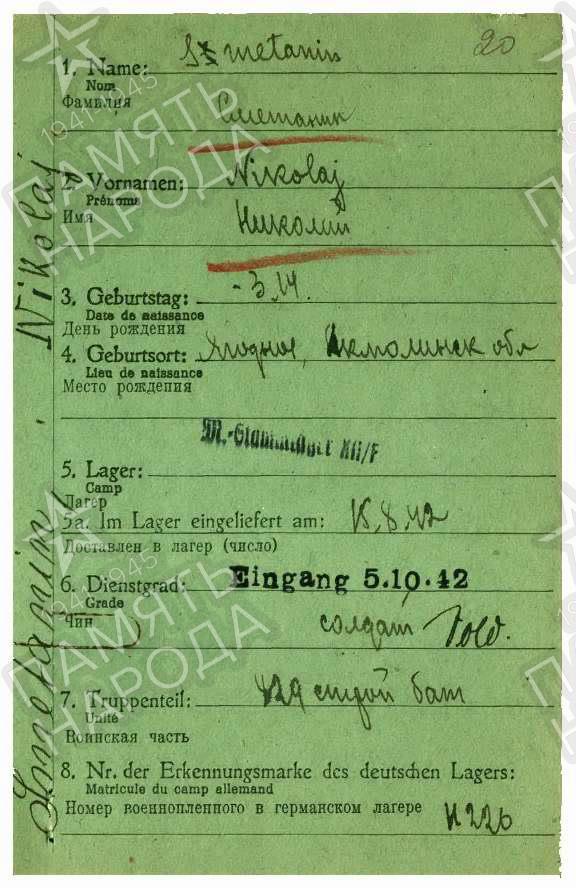 20
Smetanin
1. Name:
Nom
Фамилия
Сметанин
2. Vornamen: Nikolaj
Prénoms
Имя
Николай
3. Geburtstag: -.3.14.
Date de naissance
День рождения
4. Geburtsort: Ягодное, Акмолинск обл
Lieu de naissance
Место рождения
M.-Stammlager XII/F
5. Lager:
Camp
Лагерь
5a. Im Lager eingeliefert am: 15.8.42
Доставлен в лагер (число)
6. Dienstgrad: Eingang 5.10.42
Grade
Чин
солдат Sold.
7. Truppenteil: 429 строй бат
Unité
Воинская часть
8. Nr. der Erkennungsmarke des deutschen Lagers:
Matricule du camp allemand
Номер военнопленного в германском лагере
Smetanin, Nikolaj
ПАМЯТЬ
НАРОДА
1941-1945
ПАМЯТЬ
НАРОДА
1941-1945